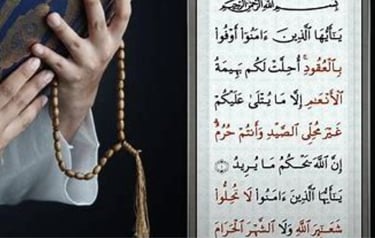 بِسْمِ اللَّهِ الرَّحْمَٰنِ الرَّحِيمِ
يَٰٓأَيُّهَا ٱلَّذِينَ ءَامَنُوٓا۟ أَوْفُوا۟
بِٱلْعُقُودِ ۚ أُحِلَّتْ لَكُم بَهِيمَةُ
ٱلْأَنْعَٰمِ إِلَّا مَا يُتْلَىٰ عَلَيْكُمْ
غَيْرَ مُحِلِّى ٱلصَّيْدِ وَأَنتُمْ حُرُمٌ ۗ
إِنَّ ٱللَّهَ يَحْكُمُ مَا يُرِيدُ ١
يَٰٓأَيُّهَا ٱلَّذِينَ ءَامَنُوا۟ لَا تُحِلُّوا۟
شَعَٰٓئِرَ ٱللَّهِ وَلَا ٱلشَّهْرَ ٱلْحَرَامَ